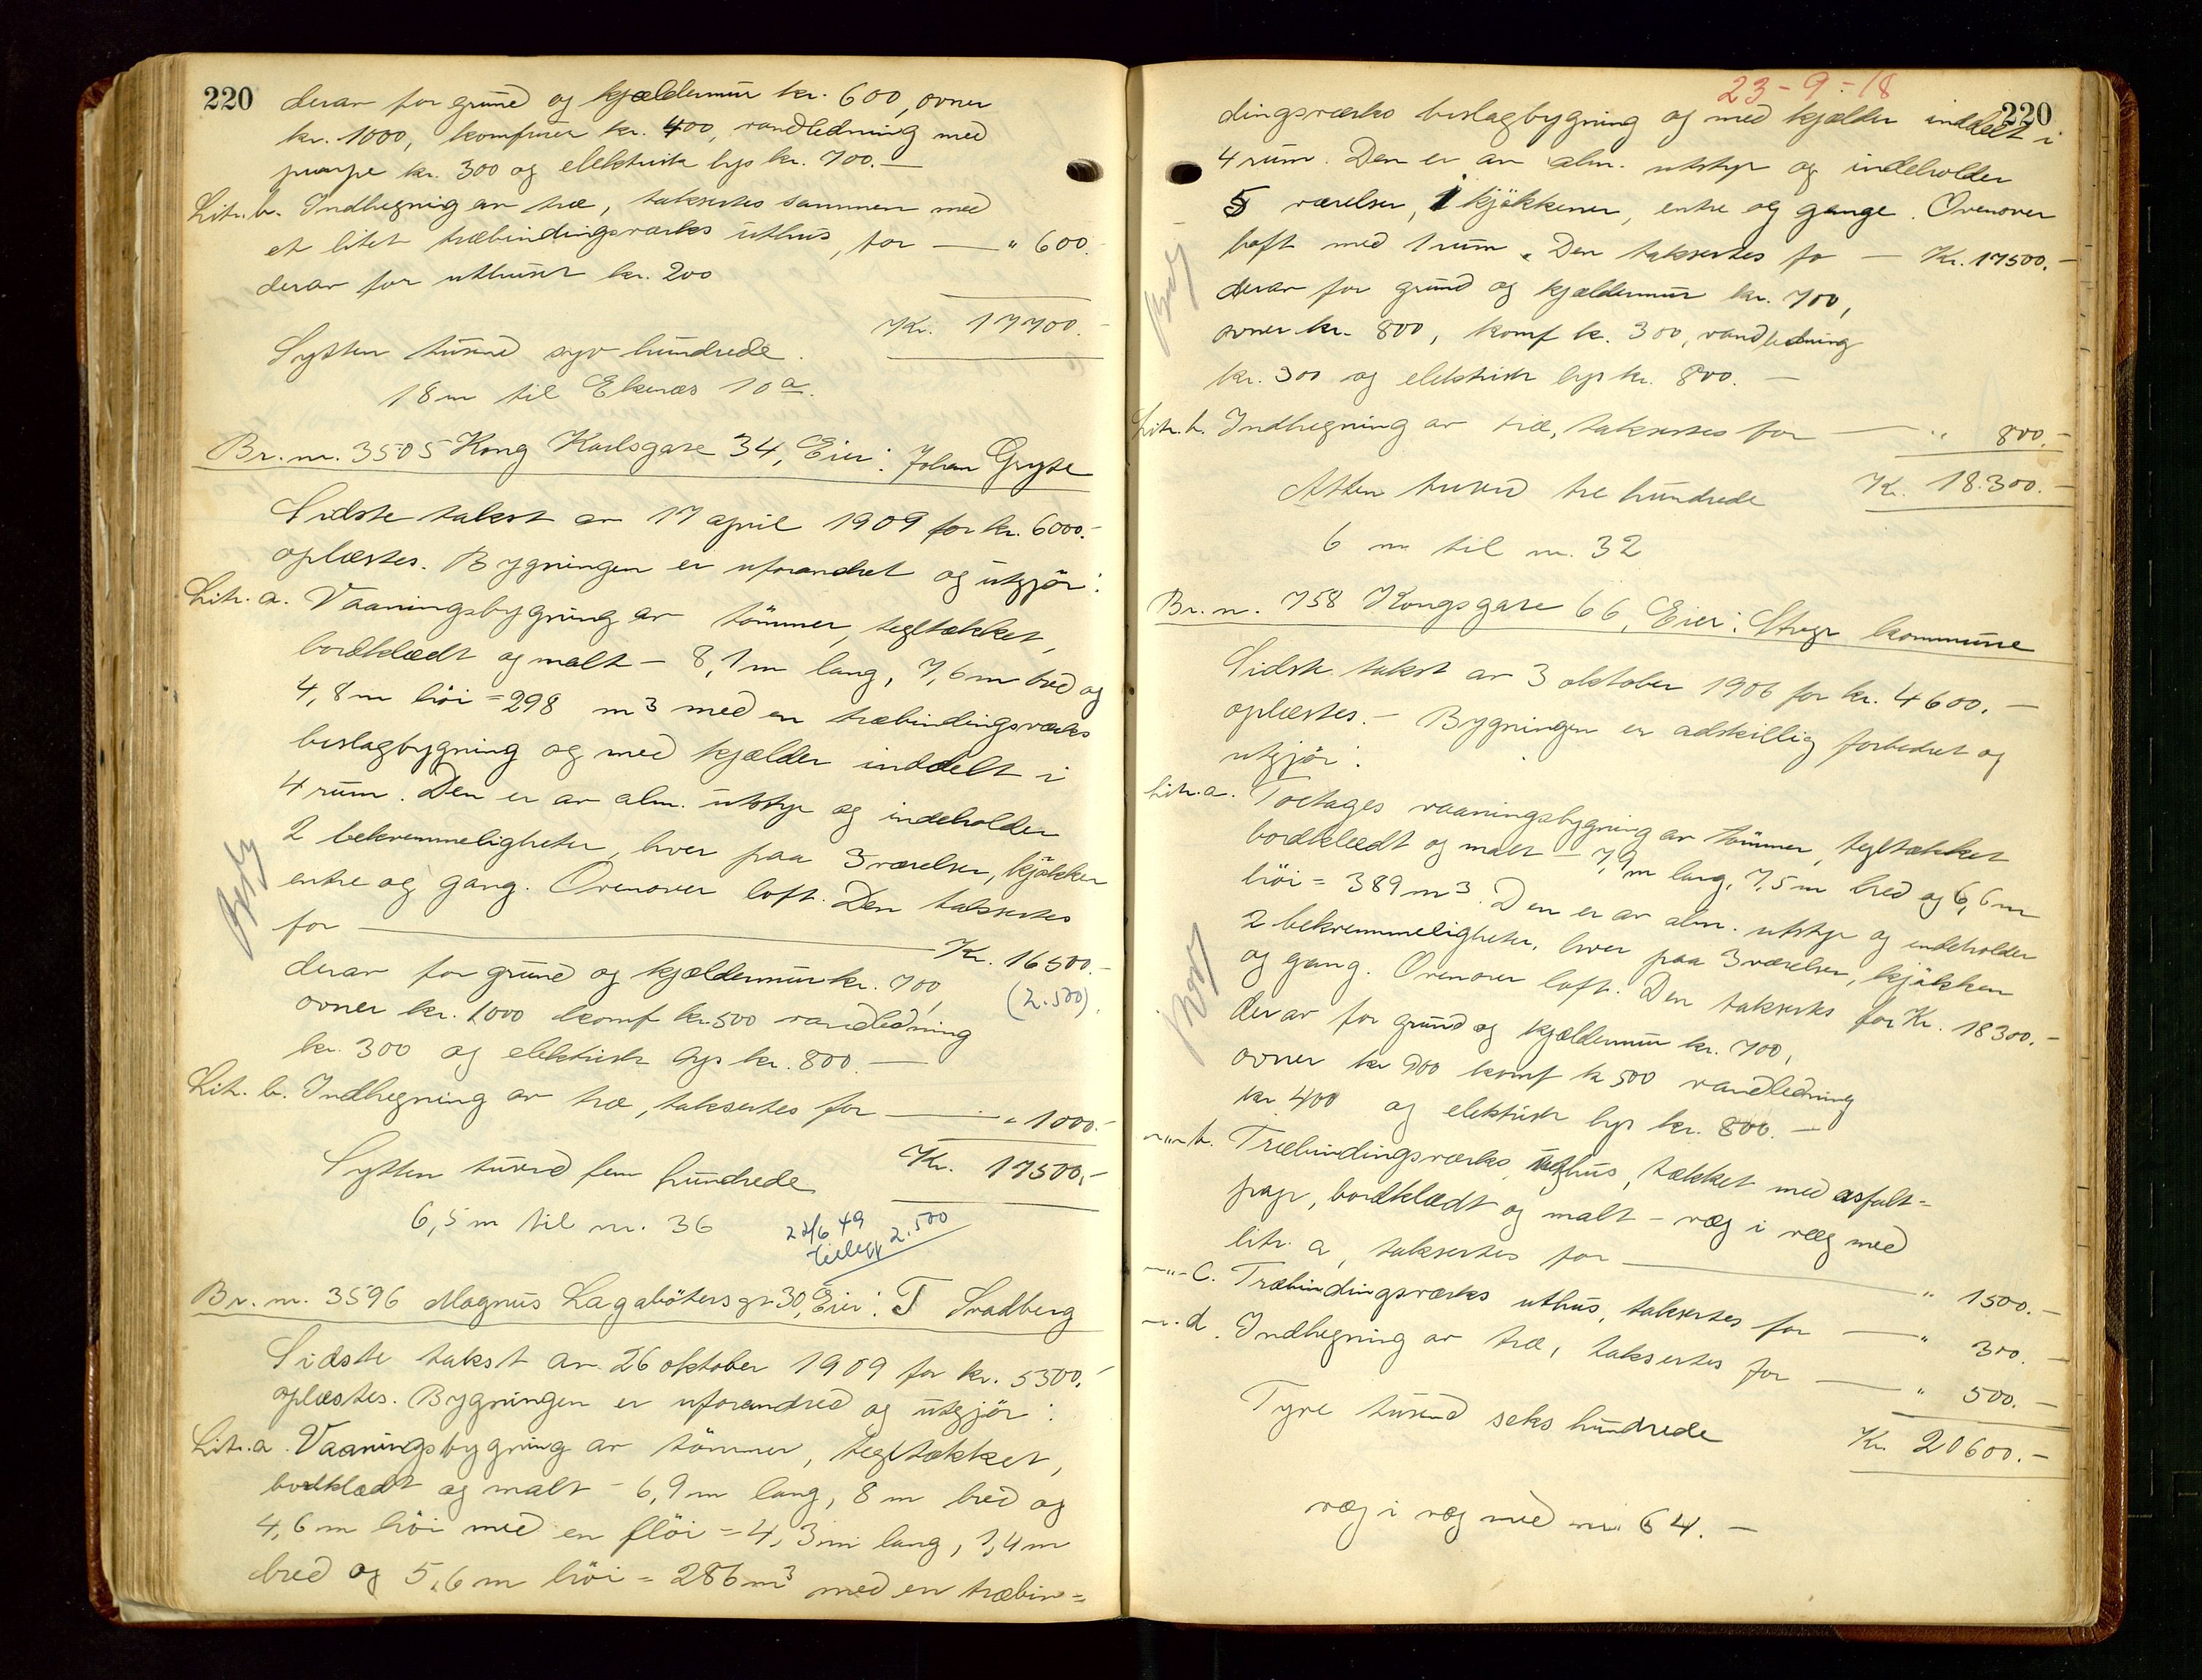 220
derav for grund og kjældermur kr. 600, ovner
kr. 1000, komfurer kr. 400, vandledning med
pumpe kr. 300 og elektrisk lys kr. 700.—
Litr. b. Indhegnig av træ, taksertes sammen med
et litet træbindingsværks uthus, for — " 600.-
derav for uthuset kr. 200
Kr. 17700.-
Sytten tusend syv hundrede.
18 m til Ekenæs 10 a.
Br. nr. 3505 Kong Karlsgate 34, Eier: Johan Gryte
Sidste takst av 17 april 1909 for kr. 6000.-
oplæstes. Bygningen er uforandret og utgjör:
Litr. a. Vaaningsbygning av tömmer, tegltækket,
bordklædt og malt — 8,1 m lang, 7,6 m bred og
4,8 m höi = 298 m3 med en træbindingsværks
beslagbygning og med kjælder inddelt i
4 rum. Den er av alm. utstyr og indeholder
2 bekvemmeligheter, hver paa 3 værelser, kjökken
entre og gang. Ovenover loft. Den taksertes
for — Kr. 16500.-
derav for grund og kjældermur kr. 700, (2.500).
ovner kr. 1000 komf kr. 500 vandledning
kr. 300 og elektrisk lys kr. 800.—
Litr. b. Indhegning av træ, taksertes for — " 1000.-
Kr. 17500,-
Sytten tusend fem hundrede
6,5 m til nr. 36
22/6 49
tillegg 2.500
Br. nr. 3596 Magnus Lagabötersgt. 30, Eier: T Svadberg
Sidste takst av 26 oktober 1909 for kr. 5500.-
oplæstes. Bygningen er uforandred og utgjör:
Litr. a. Vaaningsbygning av tömmer, tegltækket,
bordklædt og malt — 6,9 m lang, 8 m bred og
4,6 m höi med en flöi = 4,3 m lang, 1,4 m
bred og 5,6 m höi = 286 m3 med en træbin=
23-9-18
220
dingsværks beslagbygning og med kjælder inddelt i
4 rum. Den er av alm. utstyr og indeholder
5 værelser, 1 kjökkener, entre og gange. Ovenover
loft med 1 rum. Den taksertes fo — Kr. 17500.-
derav for grund og kjældermur kr. 700,
ovner kr. 800, komf k. 300, vandledning
kr. 300 og elektrisk lys kr. 800.—
Litr. b. Indhegning av træ, taksertes for — " 800.-
Kr. 18.300.-
Atten tusend tre hundrede
6 m til nr. 32
Br. nr. 758 Kongsgate 66, Eier: Stvgr kommune
Sidste takst av 3 oktober 1906 for kr. 4600.—
oplæstes.— Bygningen er adskillig forbedret og
utgjör:
Litr. a. Toetages vaaningsbygning av tömmer, tegltækket
bordklædt og malt — 7,9 m lang, 7,5 m bred og 6,6 m
höi = 389 m3. Den er av alm. utstyr og indeholder
2 bekvemmeligheter, hver paa 3 værelser, kjökken
og gang. Ovenover loft. Den taksertes for Kr. 18300.-
derav for grund og kjældermur kr. 700,
ovner kr 900 komf k 500 vandledning
kr 400 og elektrisk lys kr. 800.—
—"— b. Træbindingsværks uthus, tækket med asfalt=
pap, bordklædt og malt — væg i væg med
litr. a, taksertes for — " 1500.-
—"— c. Træbindingsværks uthus, taksertes for — " 300.-
—"— d. Indhegning av træ, taksertes for — " 500.-
Kr. 20600.-
Tyve tusend seks hundrede
væg i væg med nr. 64.—